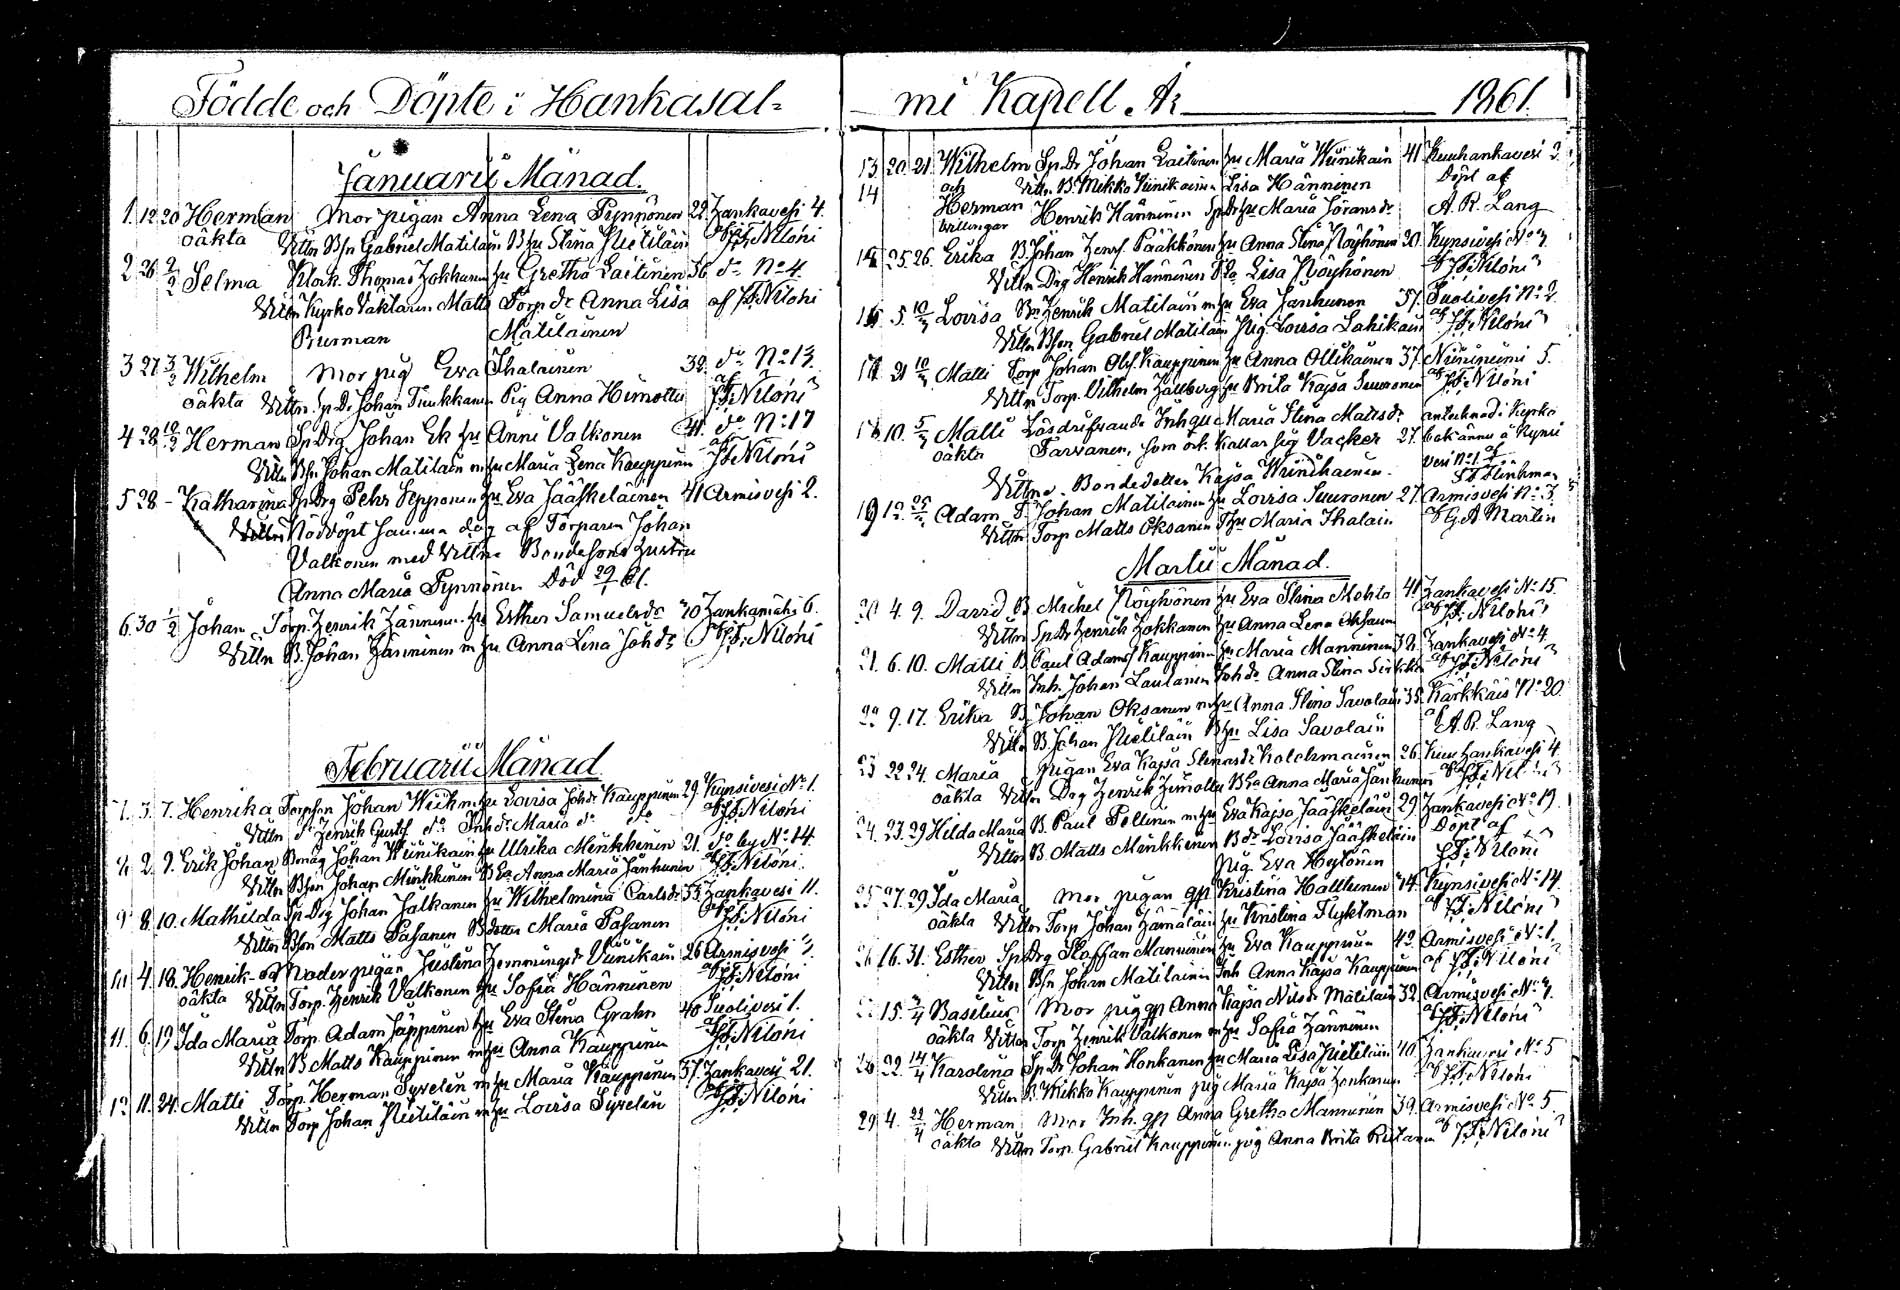 Födde och Döpte i Hankasal=
Januarii Månad.
1. 12 20 Herman Mor pigan Anna Lena Pynnönen 22. Hankavesi 4.
oäkta Vittn Bsn Gabriel Matilain B hu Stina Pietiläin af J.F. Niloni
2 26 2/2 Selma Klock. Thomas Hokkanen hu Gretha Laitinen 36 do No 4.
Vittn Kyrko Vaktaren Matts Torp. dr Anna Lisa af J.F. Niloni
Purman Matilainen
3 27 3/2 Wilhelm Mor pig Eva Ihalainen 32. do No 13
oäkta Vittn Sp. Dr Johan Tiukkanen Pig Anna Himottu af J.F. Niloni
4 28 10/2 Herman Sp Drg Johan Ek hu Anni Valkonen 41. do No 17
Vittn Bsn Johan Matilain m hu Maria Lena Kauppinen af J.F. Niloni
5 28 - Katharina Sp Drg Pehr Sepponen hu Eva Jääskeläinen 41 Armisvesi 2.
Vittn Nöddöpt samma dag af Torparen Johan
Valkonen med Vittne Bondesons hustru
Anna Maria Pynnönen Död 29/1 61.
6. 30 1/2 Johan Torp. Henrik Hänninen hu Esther Samuelsdr 40 Hankamäki 6.
Vittn B. Johan Hänninen m hu Anna Lena Johdr af J.F. Niloni
Februarii Månad
7. 3. 7. Henrika Torpson Johan Wiik m hu Lovisa Johdr Kauppinen 29. Kynsivesi No 1.
Vittn do Henrik Gustf do Inh dr Maria do do af J.F. Niloni
8 2 9. Erik Johan Bomåg Johan Wiinikain hu Ulrika Minkkinen 21. do by No 14.
Vittn Bson Johan Minkkinen B Ea Anna Maria Janhunen af J.F. Niloni
9 8. 10. Mathilda Sp Drg Johan Jalkanen hu Wilhelmina Carlsdr 33. Hankavesi 11.
Vittn Bson Matts Pasanen B dotter Maria Pasanen af J.F. Niloni
10 4. 18. Henrik Moder pigan Justina Hemmingsdr Viinikain 26 Armisvesi 7.
oäkta Vittn Torp. Henrik Valkonen hu Sofia Hänninen af J.F. Niloni
11 6. 19 Ida Maria Torp. Adam Jäppinen hu Eva Stina Grahn 40 Suolivesi 1.
Vittn B Matts Kauppinen m hu Anna Kauppinen af J.F. Niloni
12 11. 24. Matti Torp. Herman Syrelin m hu Maria Kauppinen 37. Hankavesi 21.
Vittn Torp Johan Pietiläin m hu Lovisa Syrelin af J.F. Niloni
mi Kapell År 1861.
13 20. 21 Wilhelm Sp. Dr Johan Laitinen hu Maria Wiinikain 41 Kuuhankavesi 2.
14 och Vittn B. Mikko Viinikainen Lisa Hänninen Döpt af
Herman Henrik Hänninen Sp Dr hu Maria Göransdr A. R. Lang
tvillingar
15 25. 26. Erika B. Johan Henrs. Pääkkönen hu Anna Stina Nöyhönen 30. Kynsivesi No 7.
Vittn Drg Henrik Hänninen Lisa Nöyhönen af J.F. Niloni
16 5. 10/3 Lovisa Bn Henrik Matilain m hu Eva Janhunen 37. Suolivesi No 2.
Vittn Bson Gabriel Matilain Pig Lovisa Lahikain af J.F. Niloni
17 21 10/3 Matti Torp Johan Olofs. Kauppinen hu Anna Ollikainen 37. Niininiemi 5.
Vittn Torp. Vilhelm Hällberg hu Brita Kajsa Suuronen af J.F. Niloni
18 10. 5/3 Matti Lösdrifvande Inh qu Maria Stina Mattsdr antecknad i Kyrko
oäkta Tarvanen, som ock kallar sig Vacker 27. Kynsi
vesi No 1 af
Vittne. Bondedotter Kajsa Wiinikainen.
19 12. Adam T Johan Matilainen hu Lovisa Suuronen 27. Armisvesi No 3.
Vittn Torp Matts Oksanen hu Maria Ihalain af G.A. Martin
Martii Månad.
20 4. 9. David B Michel Nöyhönen hu Eva Stina Mehto 41 Hankavesi No 15.
Vittn Sp Dr Henrik Hokkanen hu Anna Lena Oksanen af J.F. Niloni
21. 6. 10. Matti B Paul Adams Kauppinen hu Maria Manninen 32. Hankavesi No 4
Vittn Inh. Johan Lautanen Joh dr Anna Stina af J.F. Niloni
22 9. 17. Erika B. Johan Oksanen m hu Anna Stina Savolain 35. Kärkkäis No 20.
Vittn B. Johan Pietiläin B hu Lisa Savolain af A. R. Lang
23 22 24. Maria pigan Eva Kajsa Stinasdr Kolehmainen 26. Kuuhankavesi 4
oäkta Vittn Drg Henrik Himottu B Ea Anna Maria Janhunen af J.F. Niloni
24. 23. 29 Hilda Maria B. Paul Pellinen m hu Eva Kajsa Jääskeläin 29. Hankavesi No 19.
Vittn B. Matts Minkkinen B dr Lovisa Jääskeläin Döpt af
Pig. Eva Heytönen J.F. Niloni
25 27. 29 Ida Maria Mor pigan gft Kristina Halttunen 44. Kynsivesi No 14.
oäkta Vittn Torp Johan Hämäläin hu Kristina Flyktman af J.F. Niloni
26 16. 31. Esther Sp Drg Staffan Manninen hu Eva Kauppinen 42. Armisvesi No 1.
Vittn Bsn Johan Matilainen Inh Anna Kajsa Kauppinen af J.F. Niloni
15. 7/4 Basilius Mor pig gft Anna Kajsa Nilsdr Matilain 32. Armisvesi No 7.
oäkta Vittn Torp Henrik Valkonen m hu Sofia Hänninen af J.F. Niloni
28 22. 14/4 Karolina Sp Dr Johan Honkanen hu Maria Lisa Pietiläin 40. Hankavesi No 5
Vittn B. Mikko Kauppinen pig Maria Kajsa Honkanen af J.F. Niloni
29. 4. 22/4 Herman Mor Inh. gft Anna Gretha Manninen 39. Armisvesi No 5.
oäkta Vittn Torp. Gabriel Kauppinen pig Anna Brita af J.F. Niloni